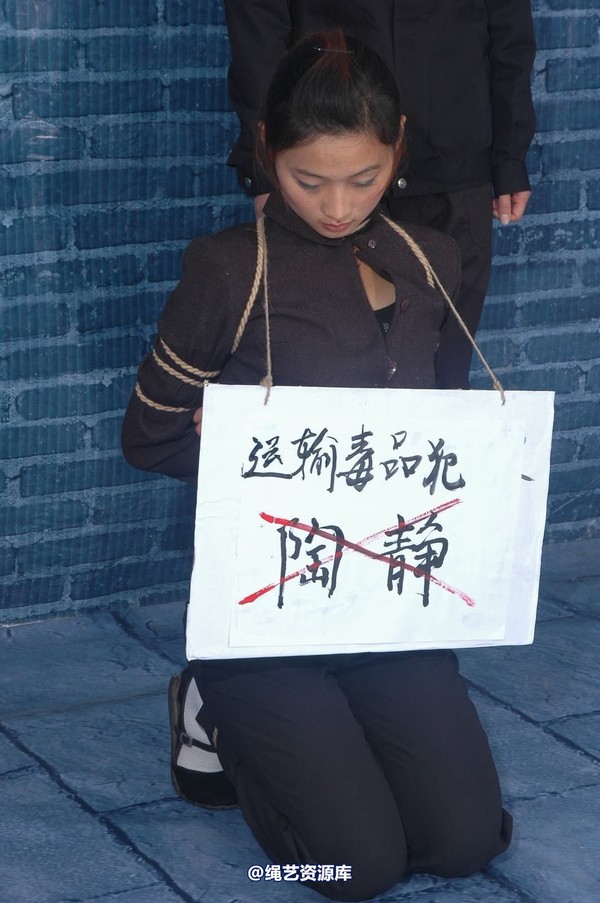 运输毒品犯
陶静
@绳艺资源库